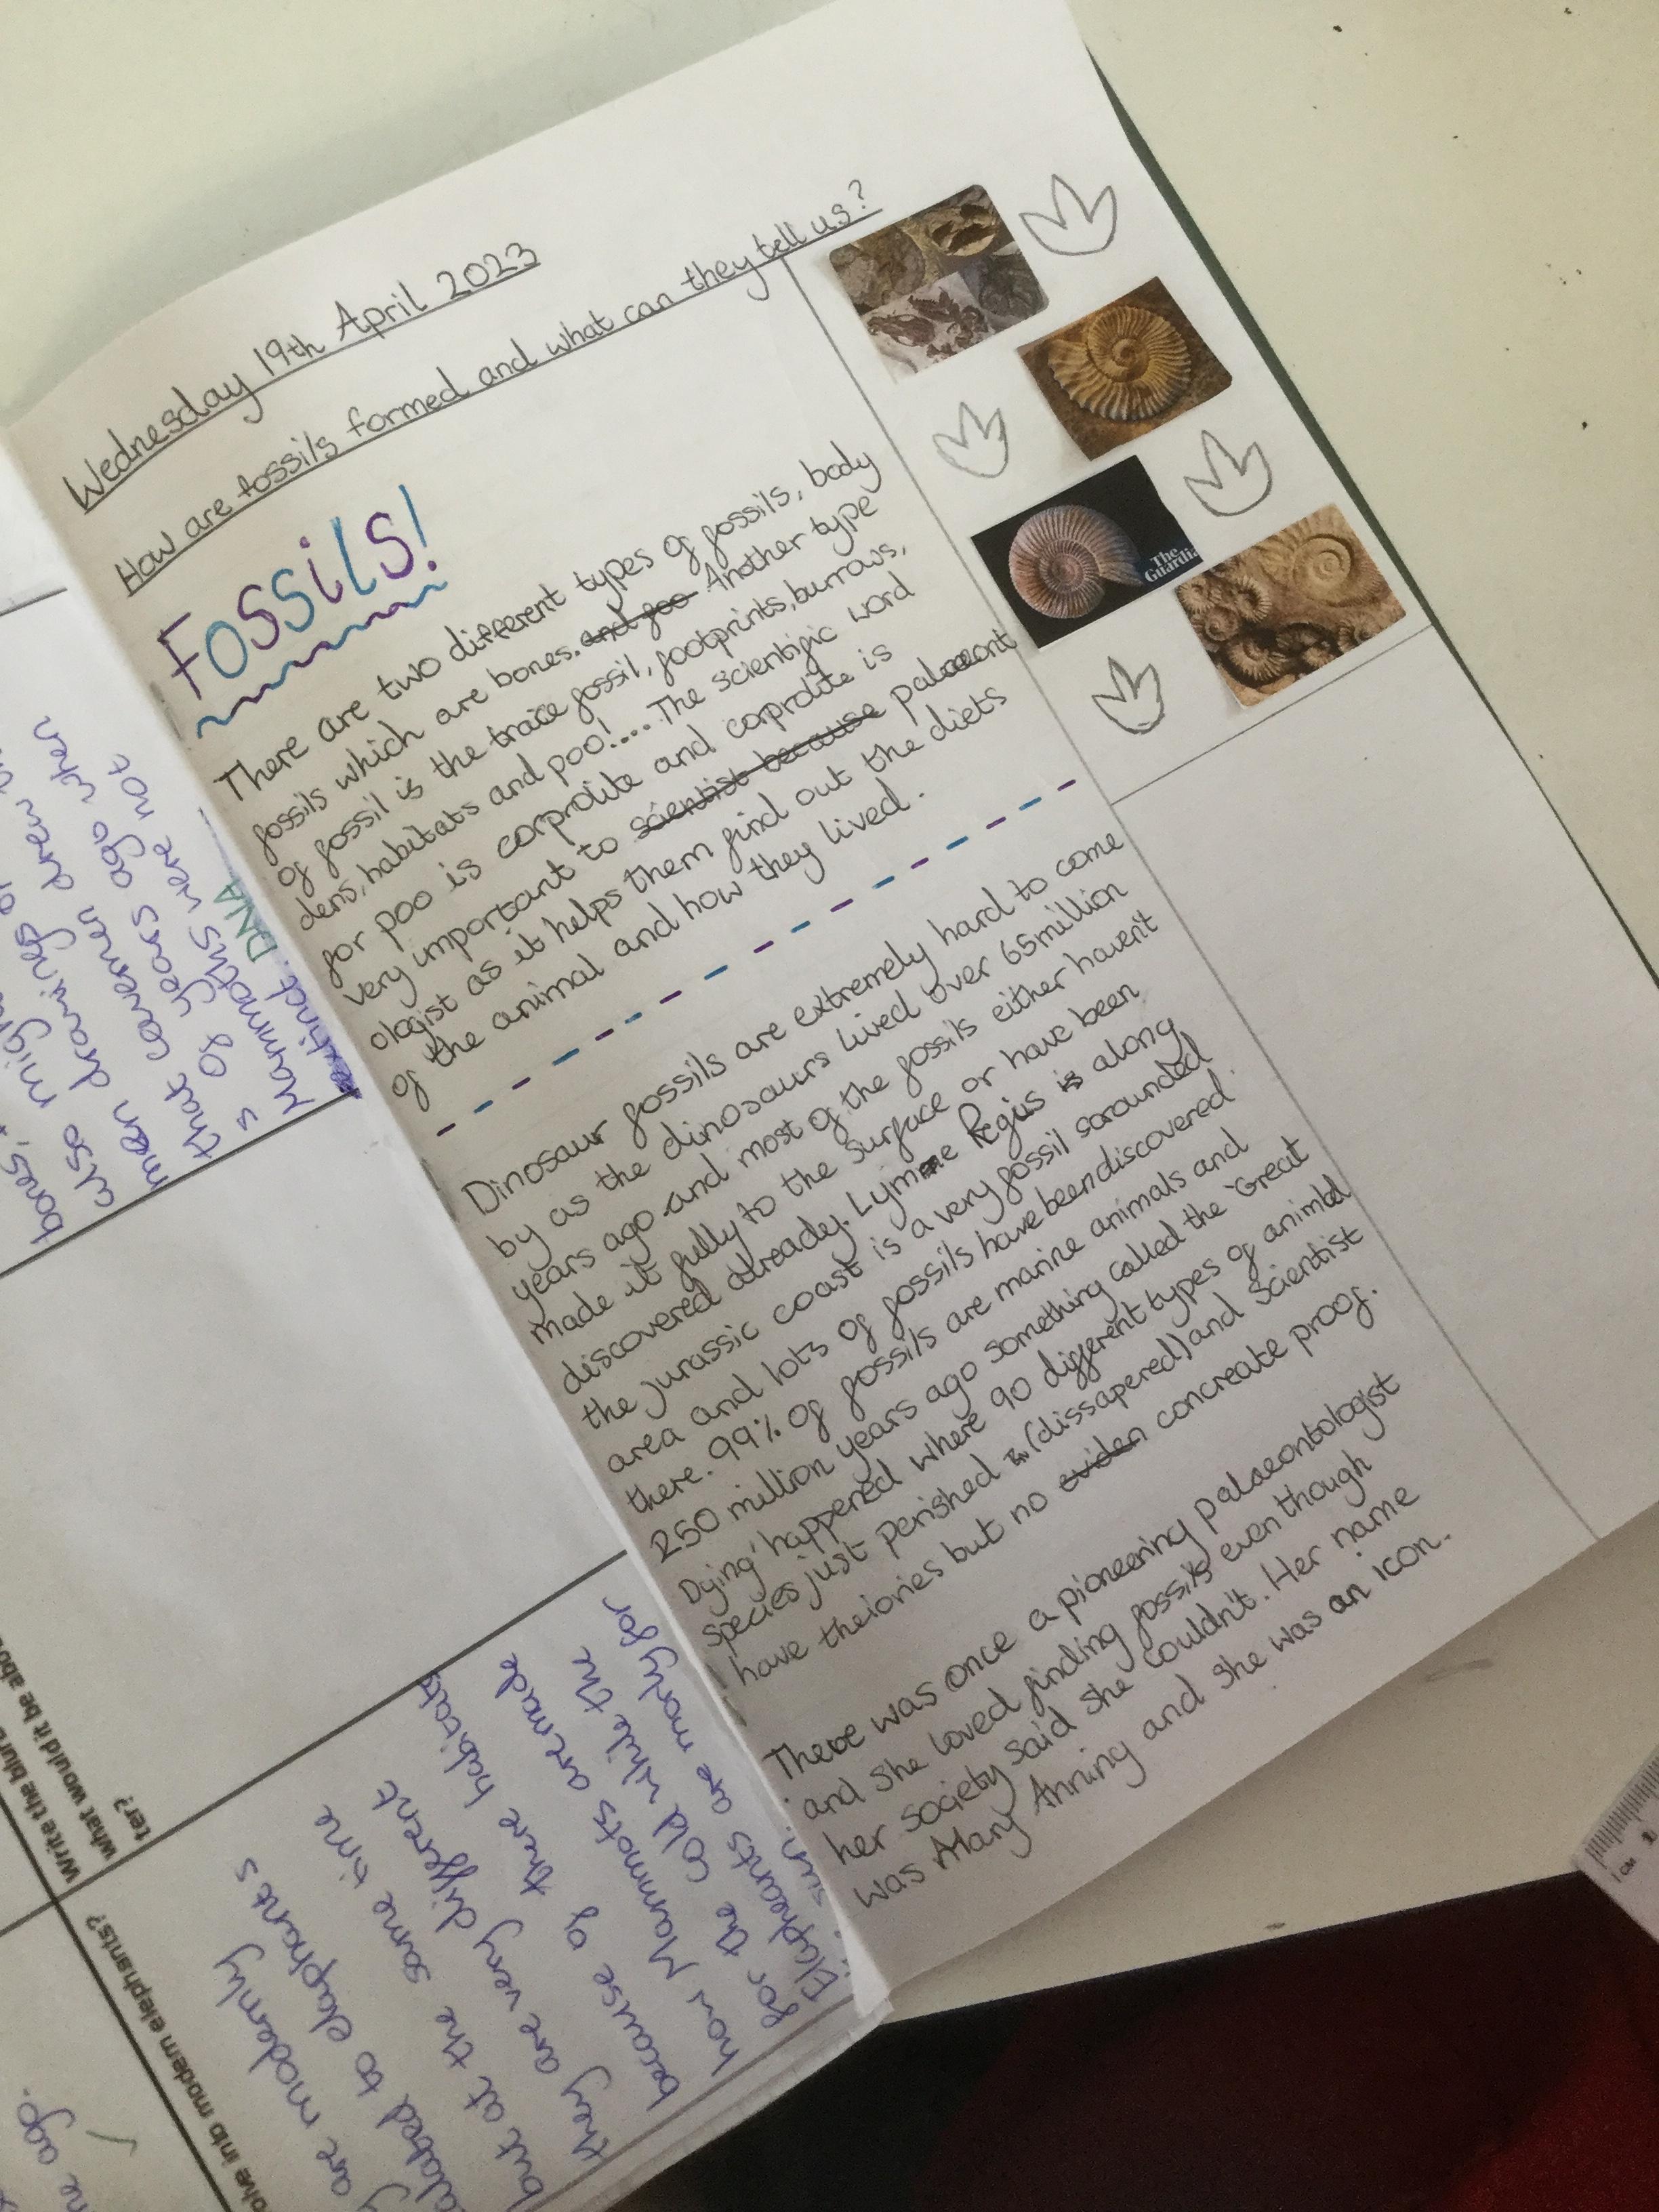 Wednesday 19th April 2023
How are fossils formed and what can they tell us?
Fossils!
There are two different types of fossils, body
fossils which are bones. and foo Another type
of fossil is the trace fossil, footprints, burrows,
dens, habitats and poo!.... The scientific word
for poo is corprolite and corprolite is
very important to scientist because palaeont
ologist as it helps them find out the diets
of the animal and how they lived.
Dinosaur fossils are extremely hard to come
by as the dinosaurs lived over 65million
years ago and most of the fossils either haven't
made it fully to the surface or have been
discovered already. Lymme Regis is along
the jurassic coast is a very fossil sorounded
area and lots of fossils have been discovered
there. 99% of fossils are marine animals and
250 million years ago something called the 'Great
Dying' happened where 90 different types of animal
species just perished (dissapered) and scientist
have theiories but no eviden concreate proof.
There was once a pioneering palaeontologist
and she loved finding fossils even though
her society said she couldn't. Her name
was Mary Anning and she was an icon.
The
Guardia
bones,
also migh
men drawings of
that cavemen drew
s of years ago when
Mammoths were not
extinct. DNA
write the blur
what would it be abo
ter?
olve into modern elephants?
are modernly
alated to elaphant's
but at the same time
they are very different
because of there habitats
how Mammots are made
for the cold while the
Elaphants are morly for
sun.
ago.
1
cm
2